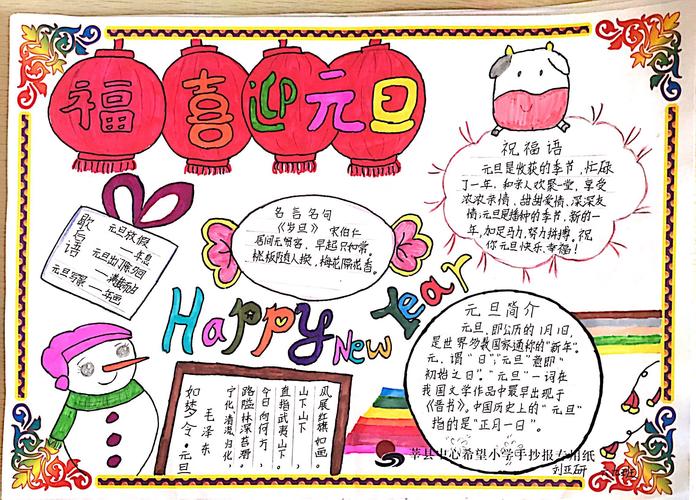 福 喜迎元旦
祝福语
元旦是收获的季节，忙碌
了一年，和亲人欢聚一堂，享受
浓浓亲情、甜甜爱情、深深友
情；元旦是播种的季节，新的一
年，加足马力，努力拼搏。祝
你元旦快乐、幸福！
歇后语
元旦放假
元旦出门
元旦
年画
名言名句
《岁旦》 宋伯仁
居间无贺客，早起只如常。
桃板随人换，梅花隔花香。
Happy New Year
元旦简介
元旦，即公历的1月1日，
是世界多数国家通称的“新年”。
元，谓“日”，“元旦”意即“
初始之日”。“元旦”一词在
我国文学作品中最早出现于
《晋书》。中国历史上的“元旦”
指的是“正月一日”。
如梦令·元旦
毛泽东
宁化、清流、归化，
路隘林深苔滑。
今日向何方，
直指武夷山下。
山下山下，
风展红旗如画。
莘县中心希望小学手抄报专用纸
刘亚研